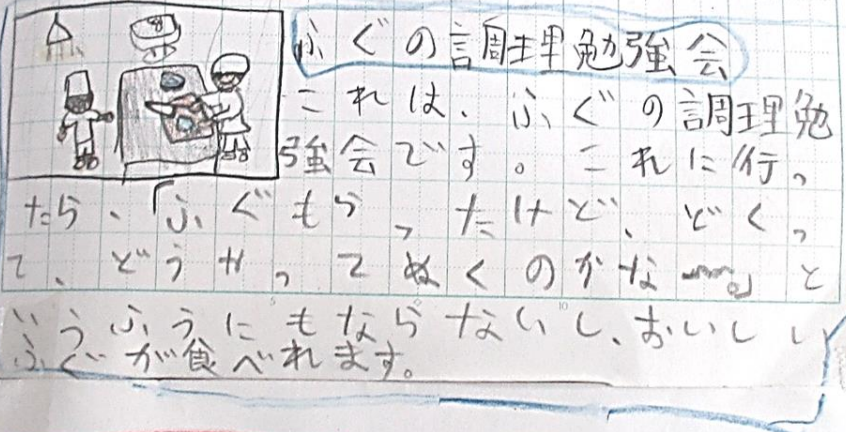 ふぐの調理勉強会
これは、ふぐの調理勉
強会です。これに行っ
たら、「ふぐもらったけど、どくっ
て、どうやってぬくのかな〜。」と
いうふうにもならないし、おいしい
ふぐが食べれます。